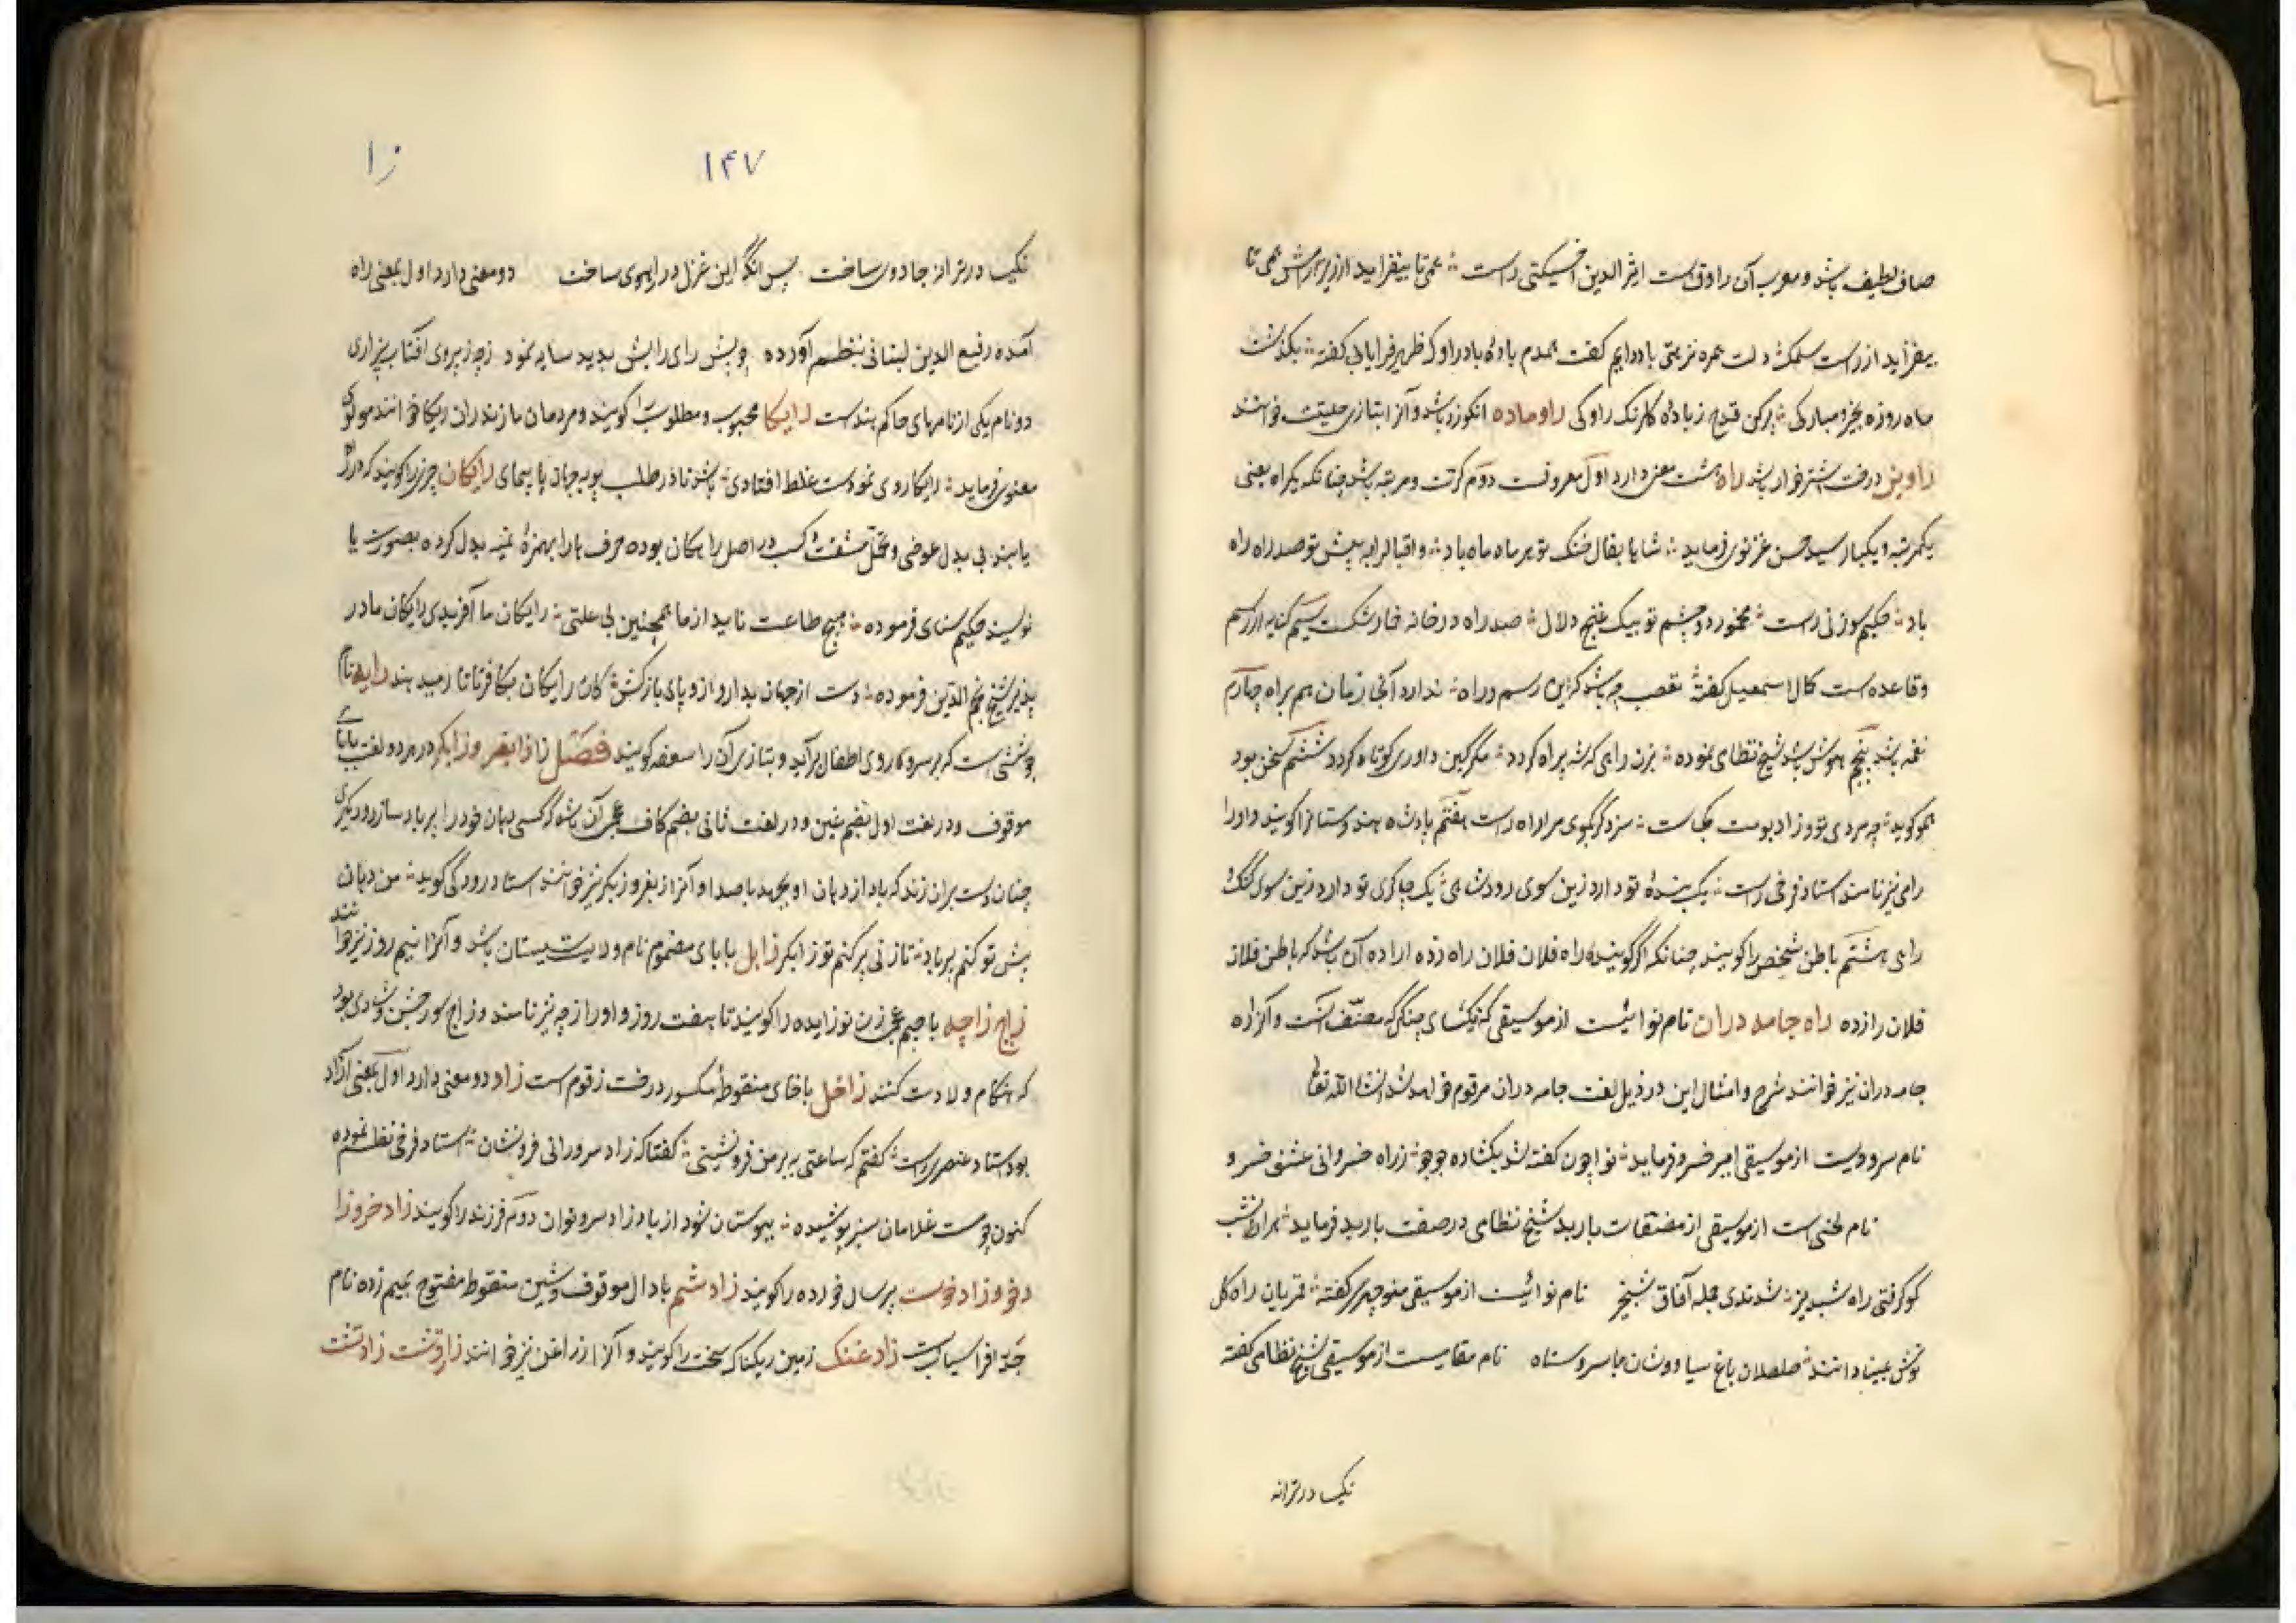 صاف لطیف باشد و معرب آن راوق است اثیر الدین اخسیکتی راست عمر تا بیفزاید از زیر
بیفزاید از راست گفت همدم باده باد راوک ظهیر فاریابی گفته بگذشت
ماه روزه بخیر و مبارکی پر کن قدح ز باده گلرنگ راوکی راوماده انگوزد باشد و آنرا بتازی حلیتت خوانند
راوین درخت اشترخوار باشد راه هشت معنی دارد اول معروفست دوم کرت و مرتبه باشد چنانکه یکراه یعنی
یکمرتبه و یکبار سید حسن غزنوی فرماید شاها بفال فتح تو هر ماه ماه باد و اقبال را به پیش تو صد راه راه
باد حکیم سوزنی راست مخمور دو چشم تو بیک غنج و دلال صد راه در خانه خمار شکست سیم کنایه از رسم
و قاعده است کمال اسمعیل گفته تعصب چه باشد که این رسم و راه ندارد آنی زمان هم براه چهارم
نغمه باشد پنجم هوش باشد شیخ نظامی نموده بزن راهی که شه بیراه گردد مگر کین داوری کوتاه گردد ششم سخن بود
همو گوید چه مردی تو و زاد بومت کجاست سزد گر بگوی مرا راه راست هفتم پادشاه هندوستانرا گویند و اورا
رای نیز نامند استاد فرخی راست یک بنده تو دارد زین سوی رود شاهی یک چاکری تو دارد زین سوی گنگ
رای هشتم باطن شخص را گویند چنانکه اگر گویند راه فلان فلان راه زده اراده آن باشد که باطن فلان
فلان را زده راه جامه دران نام نوائیست از موسیقی که نکیسای چنگی مصنف آنست و آنرا راه
جامه دران نیز خوانند شرح و امثال این در ذیل لغت جامه دران مرقوم خواهد شد انشاالله تعا
نام سرودیست از موسیقی امیر خسرو فرماید نوا چون گفته شد بگشاده جو جو ز راه خسروانی عشق خسرو
نام لحنی است از موسیقی از مصنفات باربد شیخ نظامی در صفت باربد فرماید
گو گرفتی راه شبدیز شدندی جمله آفاق شبخیز نام نوائیست از موسیقی منوچهری گفته قمریان راه گل
نوش لبینا دانند صلصلان باغ سیاووشان با سروستاه نام مقامیست از موسیقی شیخ نظامی گفته
نکیسا در ترانه
زا ۱۴۷
نکیسا در ترانه جادوی ساخت پس آنگه این غزل در راهوی ساخت دو معنی دارد اول بمعنی راه
آمده رفیع الدین لبنانی بنظم آورده چو پیش رای رایش بدید سایه نمود
دو نام یکی از نامهای حاکم هندست رایکا محبوب و مطلوب را گویند و مردمان مازندران ریکا خوانند مولوی
معنوی فرماید رایکا روی نمودست غلط افتادی باش تا در طلب پویه جهان پیمای رایکان چیزیرا گویند که در راه
یابند بی بدل عوضی و تحمل مشقت کسب در اصل راهکان بوده حرف ها را بهمزه ملینه بدل کرده بصورت یا
نویسند حکیم سنای فرموده هیچ طاعت ناید از ما همچنین بی علتی رایکان ما آفریدی رایکان ما در
پذیر شیخ نجم الدین فرموده دست از جهان بدار و ازو پای بازکش کان رایکان بکافر تاتار میدهند
جوششی است که بر سر و روی اطفال برآید و بتازی آن را سعفه گویند فصل زا زابغر و زابگر در هر دو لغت با بای
موقوف و در لغت اول بضم غین و در لغت ثانی بضم کاف عجمی آن باشد که کسی دهان خود را پر باد سازد و دیگری
چنان دست بران زند که باد از دهان او بجهد با صدا و آنرا زبغر و زبگر نیز خوانند استاد رودکی گوید من دهان
پیش تو کنم پر باد تا زنی بر کنم تو زابگر زابل با بای مضموم نام ولایت سیستان باشد و آنرا نیم روز نیز خوانند
زاج زاچه با جیم عجمی زن نو زاییده را گویند تا هفت روز و او را زچه نیز نامند و زاج سور جشن و شادی بود
که هنگام ولادت کنند زاخل با خای منقوطه مکسور درخت زقوم است زاد دو معنی دارد اول بمعنی آزاد
بود استاد عنصری راست گفتم که ساعتی ببر من فرو نشینی گفتا که زاد سرو رانی فرونشان استاد فرخی نظم نموده
کنون چو مست غلامان سبز پوشیده ببوستان شود از باد زاد سرو نوان دوم فرزند را گویند زادخورزا
دخو و زادخوست پیر سال خورده را گویند زادشم با دال موقوف و شین منقوطه مفتوح بمیم زده نام
جد افراسیاب است زادغنک زمین ریکناک سخت را گویند و آنرا زراغن نیز خوانند زارتشت زارتشت